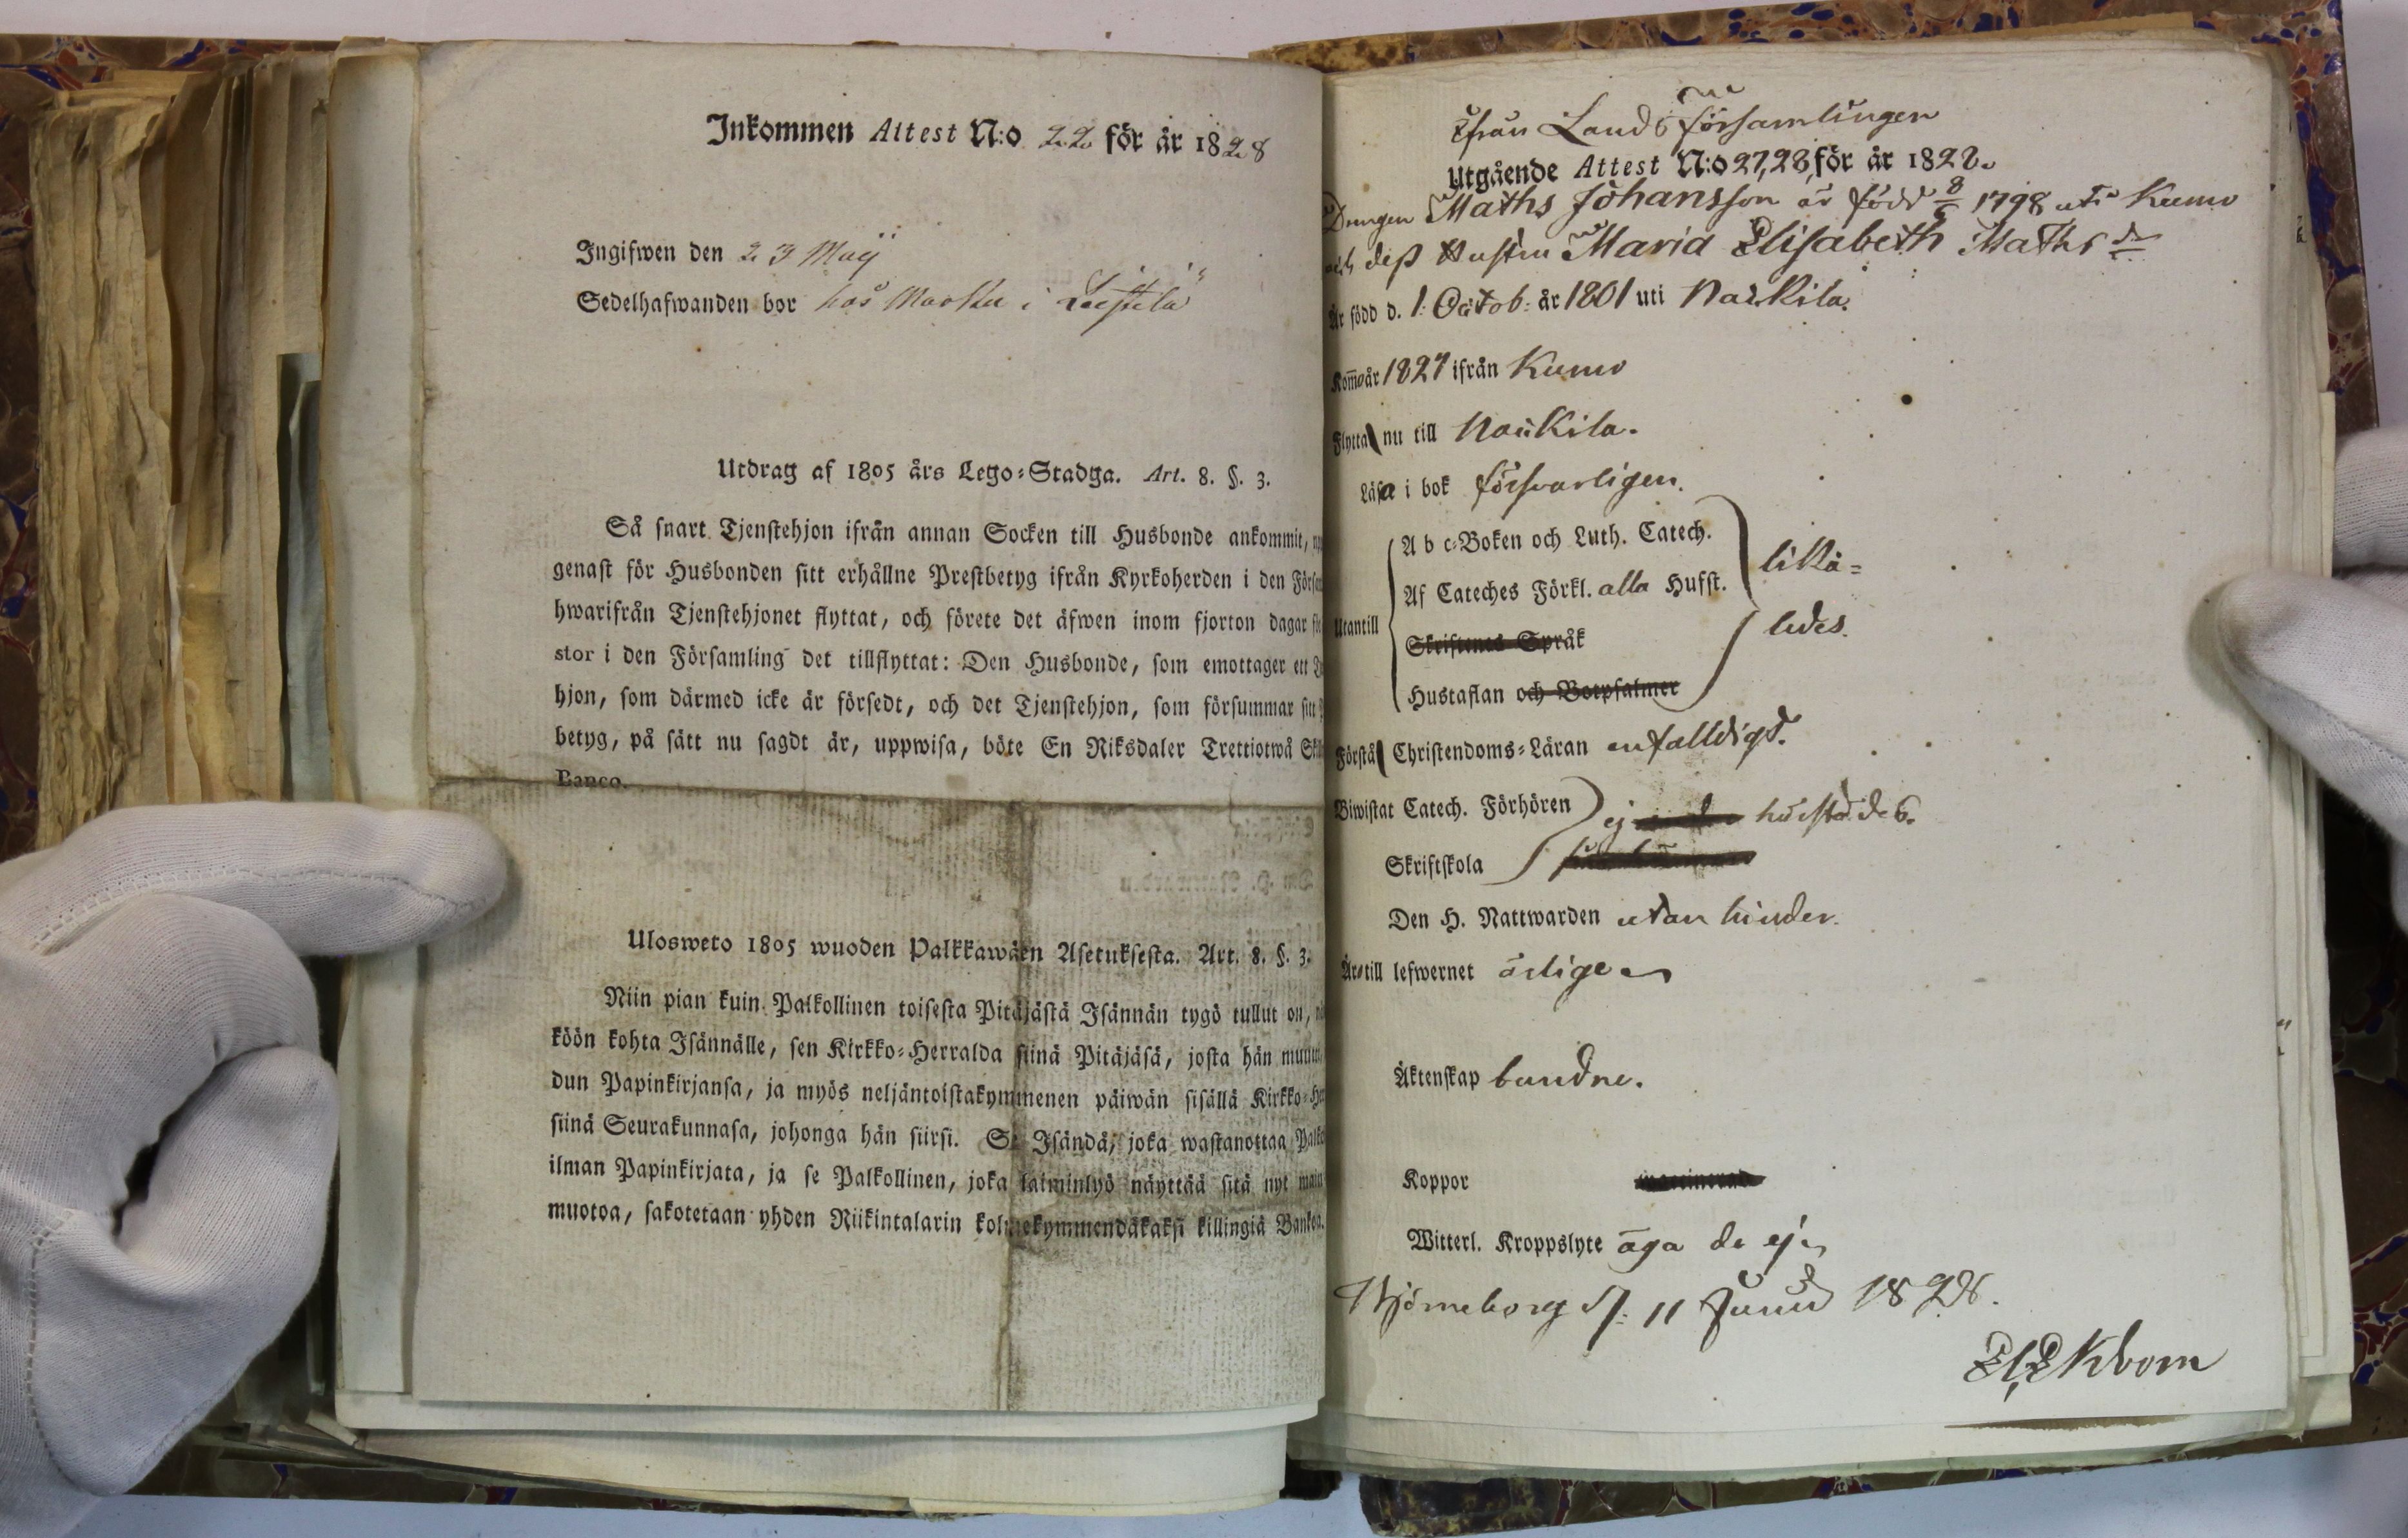 Inkommen Attest N:o 22 för år 1828
Ingifwen den 23 Maij
Sedelhafwanden bor hos i
Utdrag af 1805 års Lego-Stadga. Art. 8. §. 3.
Så snart Tjenstehjon ifrån annan Socken till Husbonde ankommit,
genast för Husbonden sitt erhållne Prestbetyg ifrån Kyrkoherden i den
hwarifrån Tjenstehjonet flyttat, och förete det äfwen inom fjorton dagar
stor i den Församling det tillflyttat: Den Husbonde, som emottager ett
hjon, som därmed icke är försedt, och det Tjenstehjon, som försummar sitt
betyg, på sätt nu sagdt är, uppwisa, böte En Riksdaler Trettiotwå
Banco.
Ulosweto 1805 wuoden Palkkawäen Asetuksesta. Art. 8. §. 3.
Niin pian kuin Palkollinen toisesta Pitäjästä Isännän tygö tullut on,
köön kohta Isännälle, sen Kirkko-Herralda siinä Pitäjäsä, josta hän
dun Papinkirjansa, ja myös neljäntoistakymmenen päiwän sisällä Kirkko-
siinä Seurakunnasa, johonga hän siirsi. Se Isändä, joka wastanottaa
ilman Papinkirjata, ja se Palkollinen, joka laiminlyö näyttää sitä nyt
muotoa, sakotetaan yhden Riikintalarin kolmekymmendäkaksi killingiä Bankoa.
Ifrån Lands församlingen
Utgående Attest N:o 27,28, för år 1828.
Drengen Maths Johansson är född 8/6 1798 uti Kumo
och dess Hustru Maria Elisabeth Mathsdr
Är född d. 1 Octob: år 1801 uti Nakkila.
Kom̄o år 1827 ifrån Kumo
Flytta nu till Nakkila.
Läsa i bok försvarligen.
Utantill
A b c-Boken och Luth. Catech.
Af Cateches Förkl. alla Hufst.
lika-
Skriftenes Språk
ledes.
Hustaflan och Botpsalmer
Förstå Christendoms-Läran enfalldigt.
Biwistat Catech. Förhören
ej hústådes.
Skriftskola
Den H. Nattwarden utan hinder.
Äro till lefwernet ärlige
Äktenskap bundne.
Koppor vaccinerad
Witterl. Kroppslyte äga de ej.
Björneborg d. 11 Junii 1828.